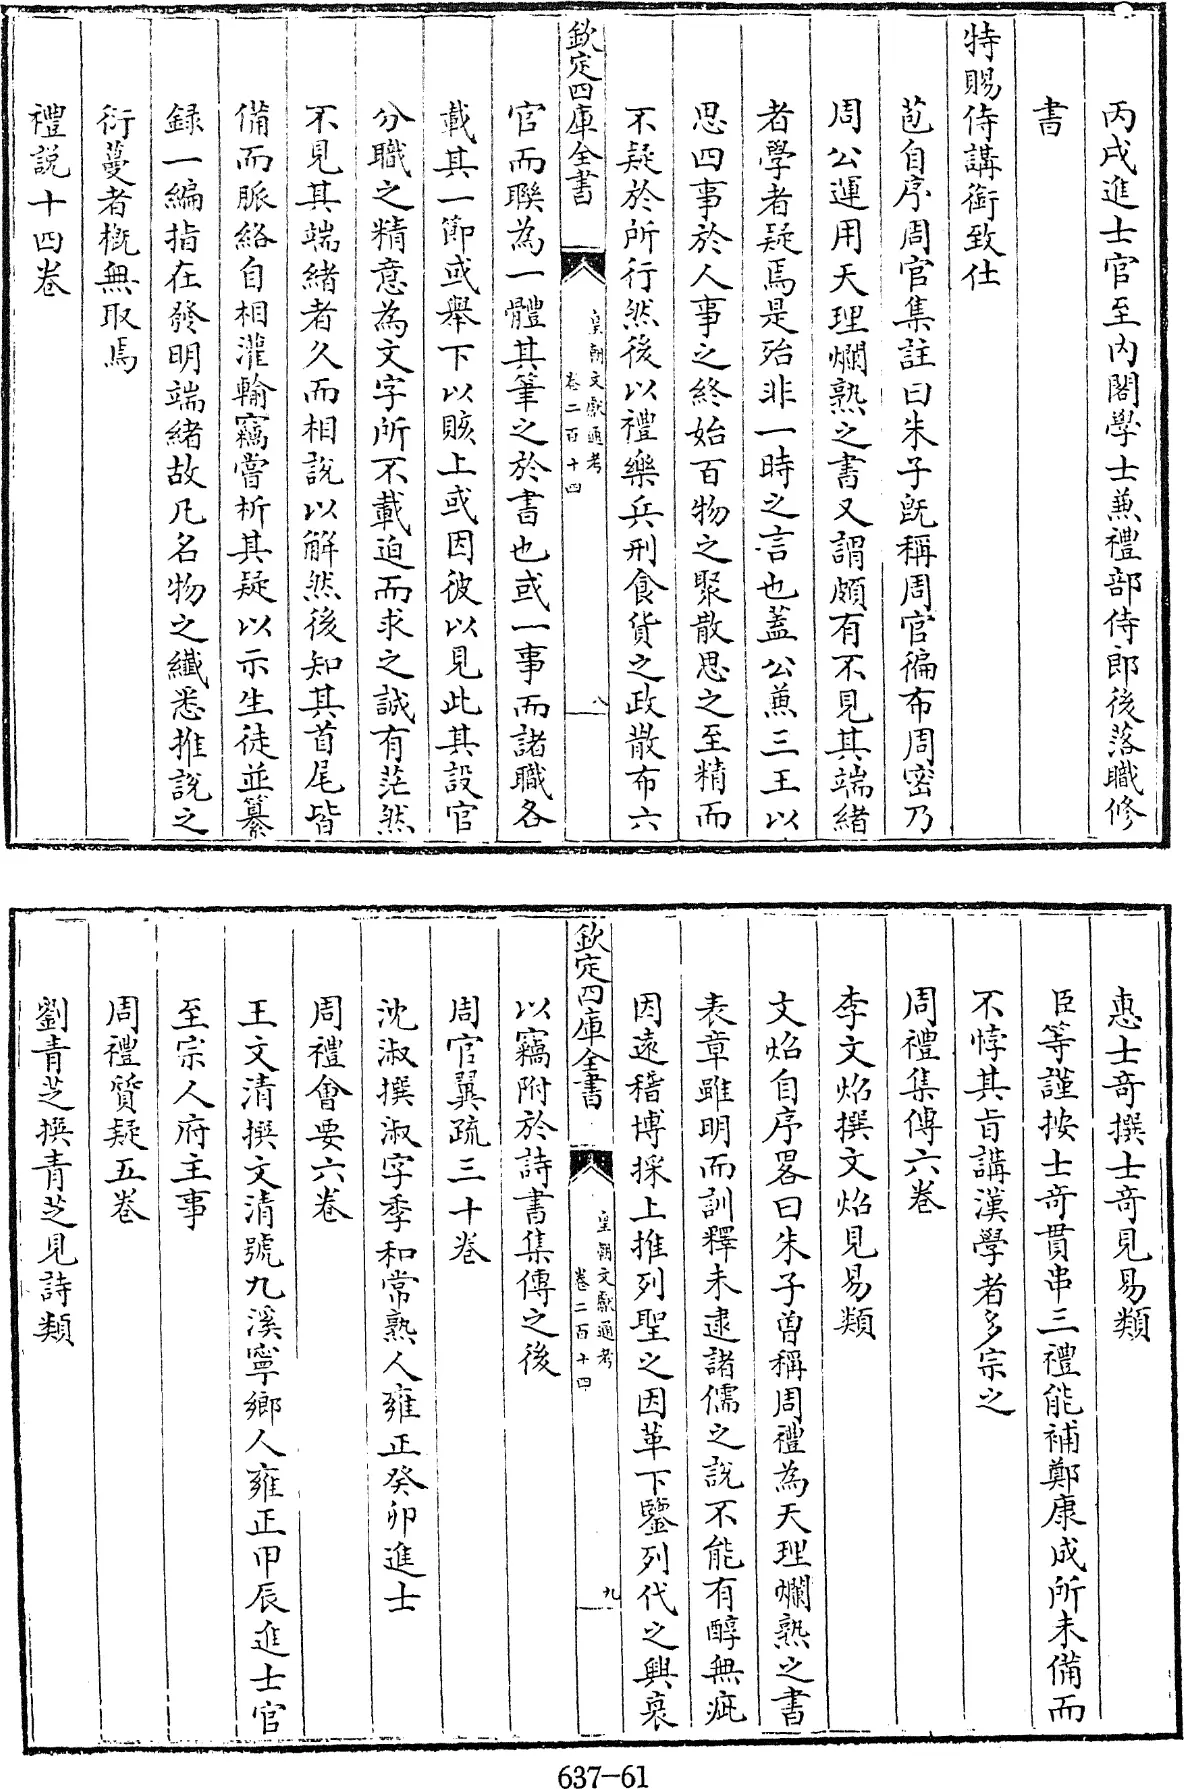 丙戌進士官至内閣學士兼禮部侍郎後落職修
書
特賜侍講銜致仕
苞自序周官集註曰朱子旣稱周官徧布周密乃
周公運用天理爛熟之書又謂頗有不見其端緒
者學者疑焉是殆非一時之言也蓋公兼三王以
思四事於人事之終始百物之聚散思之至精而
不疑於所行然後以禮樂兵刑食貨之政散布六
欽定四庫全書
皇朝文獻通考
卷二百十四
八
官而聯為一體其筆之於書也或一事而諸職各
載其一節或舉下以賅上或因彼以見此其設官
分職之精意為文字所不載迫而求之誠有茫然
不見其端緒者久而相說以解然後知其首尾皆
備而脈絡自相灌輸竊嘗析其疑以示生徒並纂
録一編指在發明端緒故凡名物之纖悉推說之
衍蔓者槪無取焉
禮說十四卷
惠士奇撰士奇見易類
臣等謹按士奇貫串三禮能補鄭康成所未備而
不悖其旨講漢學者多宗之
周禮集傳六卷
李文炤撰文炤見易類
文炤自序畧曰朱子曾稱周禮為天理爛熟之書
表章雖明而訓釋未逮諸儒之說不能有醇無疵
因遠稽博採上推列聖之因革下鑒列代之興衰
欽定四庫全書
皇朝文獻通考
卷二百十四
九
以竊附於詩書集傳之後
周官翼疏三十卷
沈淑撰淑字季和常熟人雍正癸卯進士
周禮會要六卷
王文清撰文清號九溪寧鄉人雍正甲辰進士官
至宗人府主事
周禮質疑五卷
劉青芝撰青芝見詩類
637-61